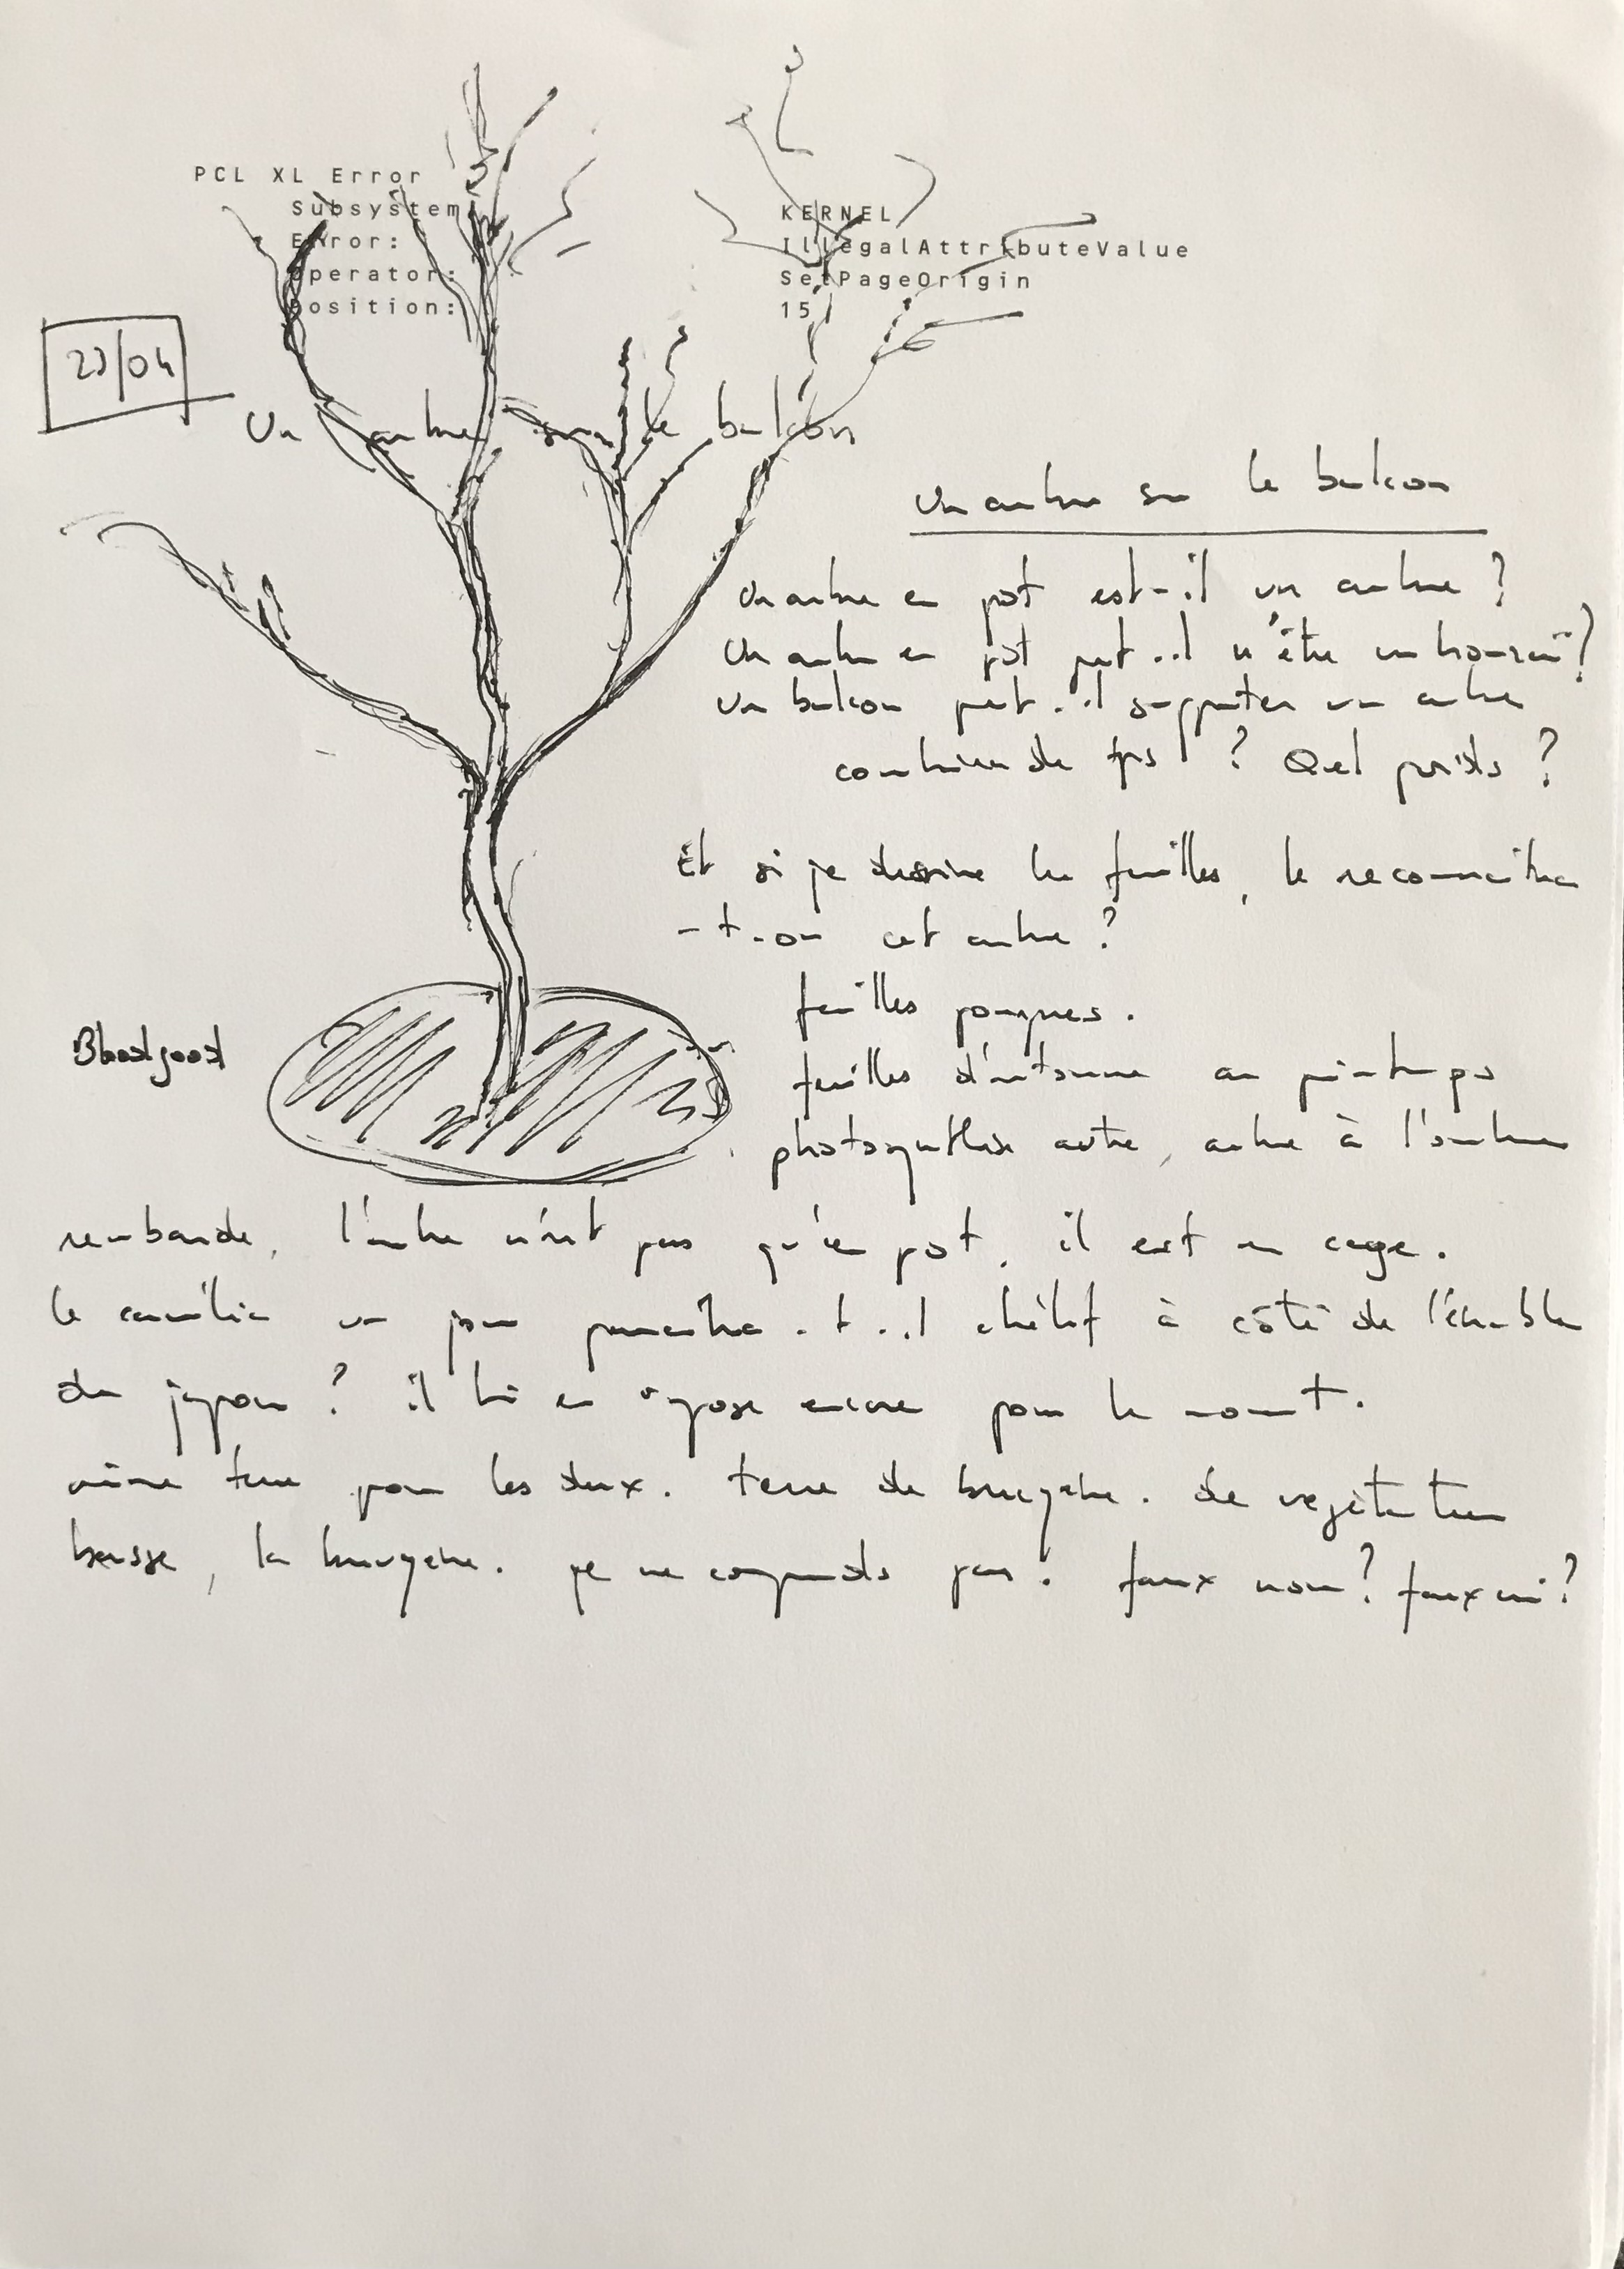 PCL XL Error
Subsystem KERNEL
Error: IllegalAttributeValue
Operator: SetPageOrigin
Position: 15
23/04
Un arbre sur le balcon
Un arbre sur le balcon
Un arbre en pot est-il un arbre ?
Un arbre en pot peut-il n'être un bonsaï ?
Un balcon peut-il supporter un arbre
combien de tps ? Quel poids ?
Et si je dessine les feuilles, le reconnaitra
-t-on cet arbre ?
feuilles pourpres.
Bloodgood
feuilles d'automne au printemps
photosynthèse autre, arbre à l'ombre
rembarde, l'arbre n'est pas qu'en pot, il est en cage.
le camélia un jour paraitra-t-il chétif à côté de l'érable
du japon ? il lui en impose encore pour le momt.
même terre pour les deux. terre de bruyère. de végétation
basse, la bruyère. je ne comprends pas. faux nom ? faux ami ?